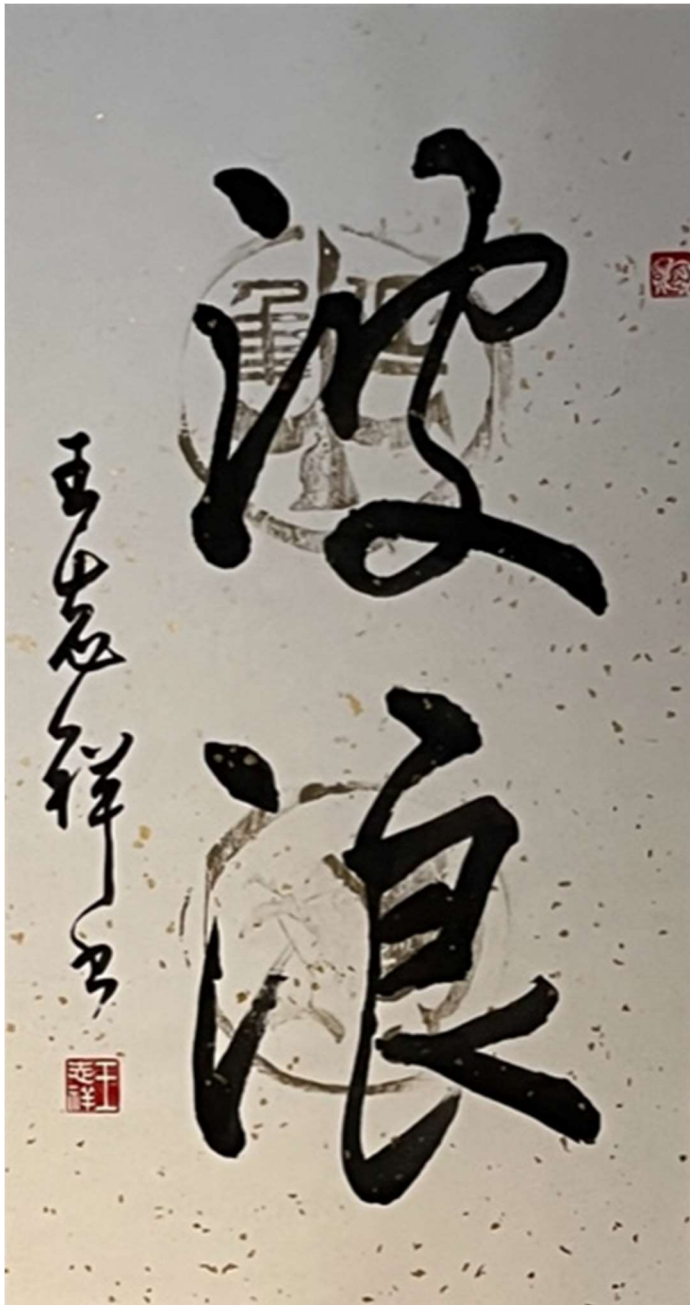 波浪
王志祥书
王志祥